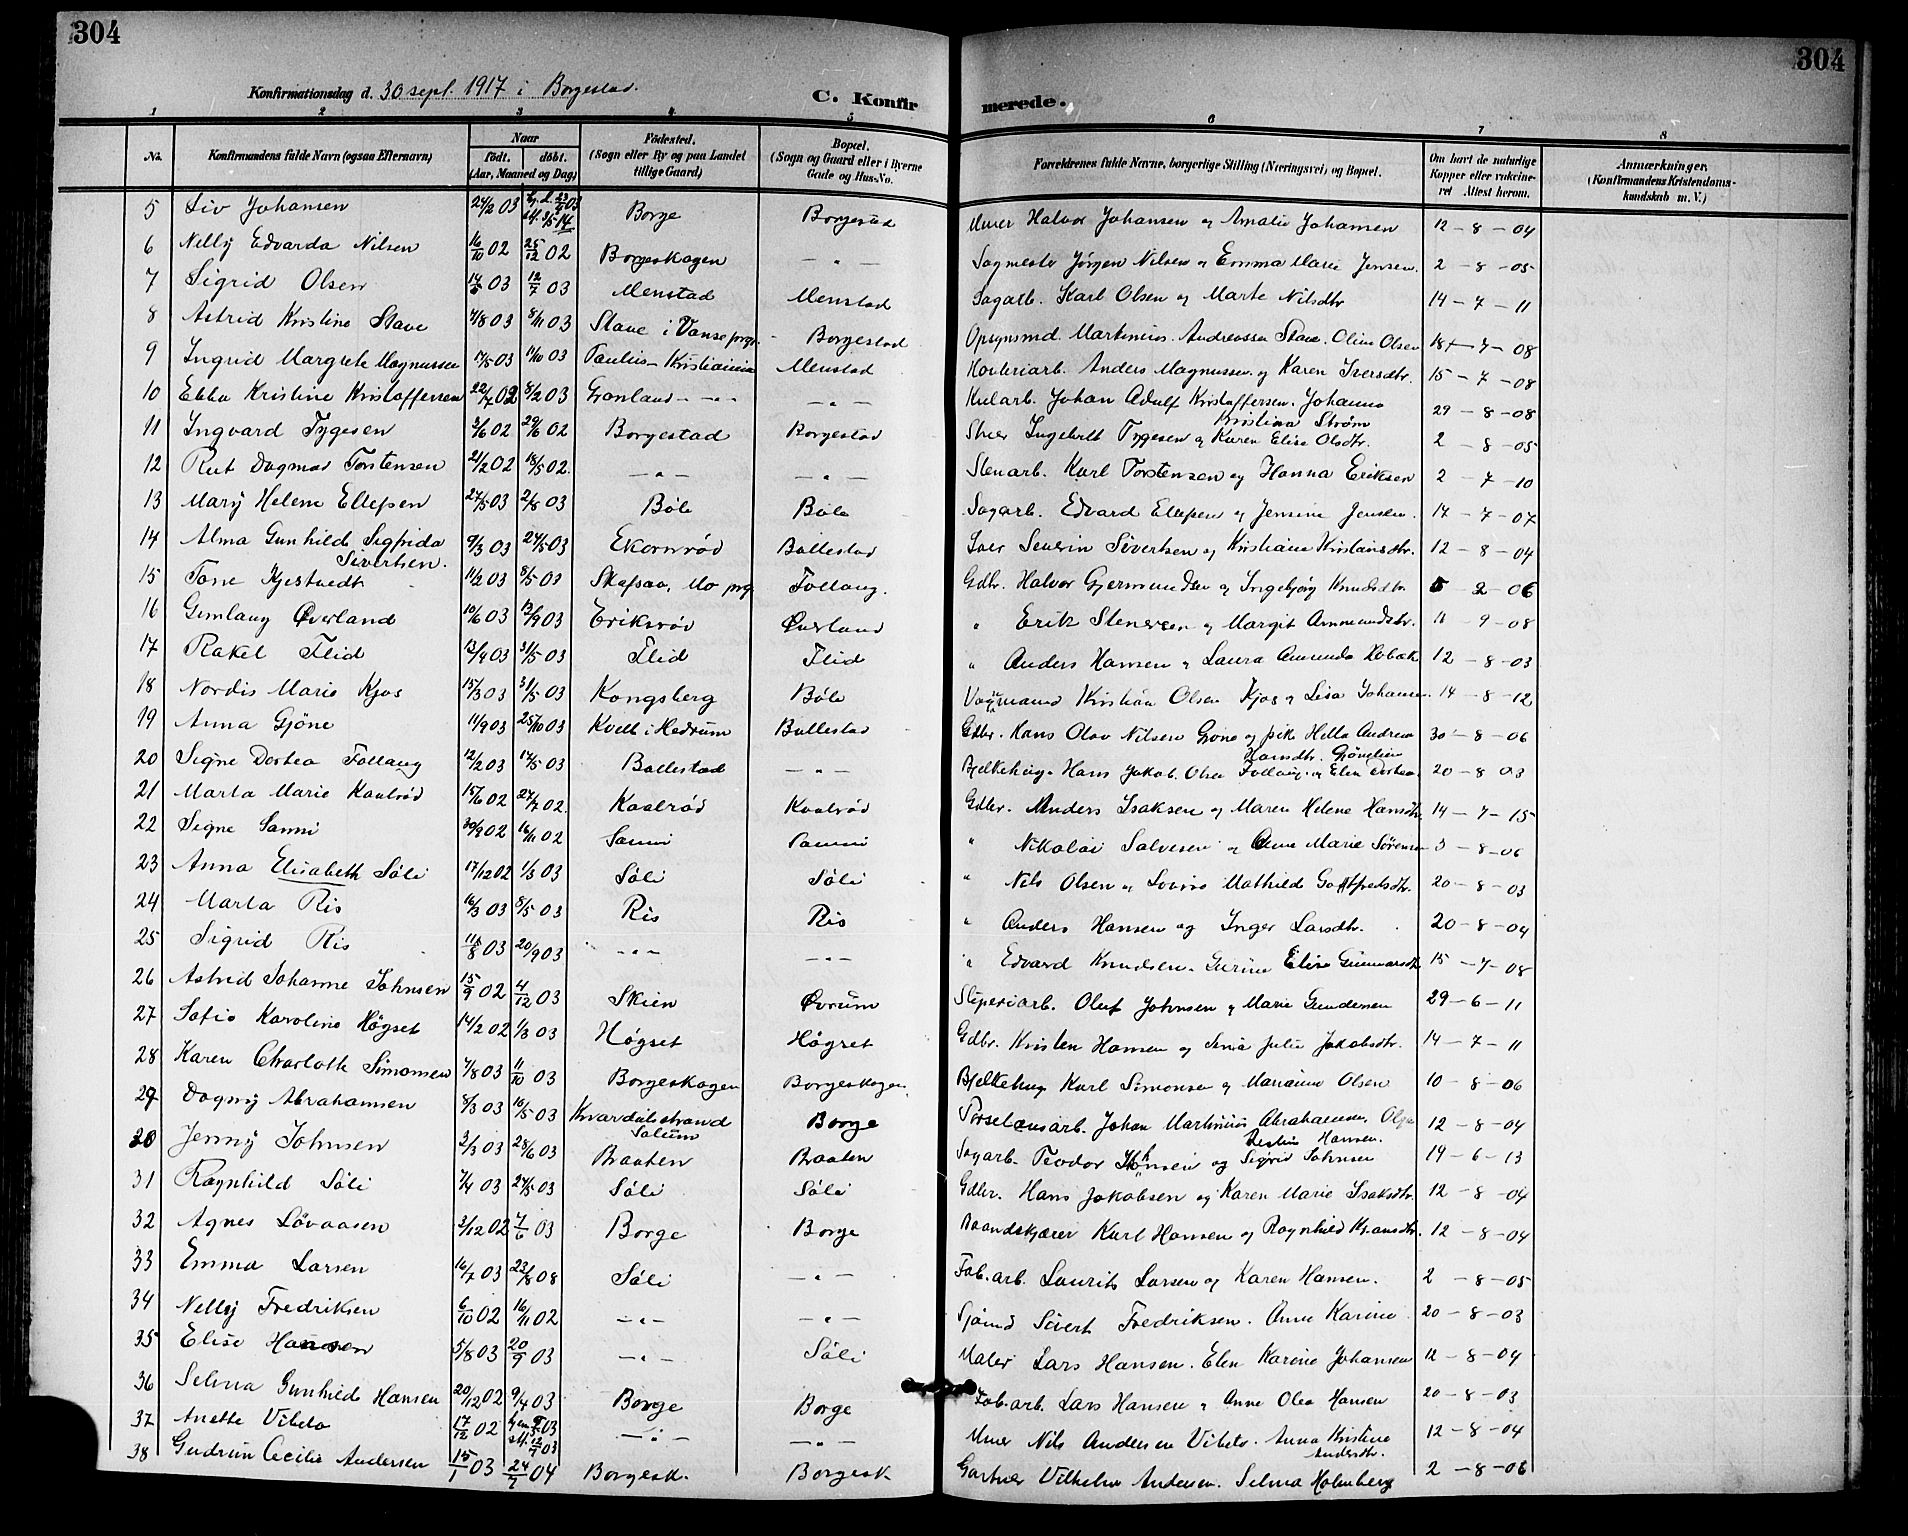 304
304
Konfirmationsdag d. 30 sept. 1917 i Borgestad.
C. Konfirmerede.
1 2 3 4 5 6 7 8
No.
Konfirmandens fulde Navn (ogsaa Efternavn)
Naar født. døbt. (Aar, Maaned og Dag)
Fødested. (Sogn eller By og paa Landet tillige Gaard)
Bopæl. (Sogn og Gaard eller i Byerne Gade og Hus-No.
Forældrenes fulde Navne, borgerlige Stilling (Næringsvei) og Bopæl.
Om havt de naturlige Kopper eller vakcineret Attest herom.
Anmærkninger. (Konfirmandens Kristendomskundskab m. V.)
5 Liv Johansen 24/2 03 Borge Borgestad Murer Halvor Johansen og Amalie Johansen 12-8-04
6 Nelly Edvarda Nilsen 16/10 02 25/12 02 Borgeskogen -"- Sagmester Jørgen Nilsen og Emma Marie Jensen. 2-8-05
7 Sigrid Olsen 03 12/7 03 Menstad Menstad Sagarb. Karl Olsen og Marte Nilsdtr 14-7-11
8 Astrid Kristine Stave 7/8 03 8/11 03 Stave i Vanse prgj. Borgestad Opsynsmd. Martinius Andreassen Stave. Oline Olsen 18-7-08
9 Ingrid Margrete Magnussen 17/5 03 11/10 03 Paulus-Kristiania Menstad Høvleriarb. Anders Magnussen og Karen Iversdtr. 15-7-08
10 Ebba Kristine Kristoffersen 22/7 02 8/2 03 Grønland -"- -"- Kularb. Johan Adulf Kristoffersen. Johanne Kristina Strøm 29-8-08
11 Ingvard Tygesen 3/6 02 29/6 02 Borgestad Borgestad Skuer Ingebret Tygesen og Karen Elise Olsdtr. 2-8-05
12 Rut Dagmar Torstensen 21/2 02 18/5 02. -"- -"- Stenarb. Karl Torstensen og Hanna Eriksen 2-7-10
13 Mary Helene Ellefsen 27/5 03 2/8 03 Bøle Bøle Sagarb. Edvard Ellefsen og Jensine Jensen. 14-7-07
14 Alma Gunhilde Sigfrida Sivertsen. 9/3 03 24/5 03 Ekornrød Ballestad Severin Sivertsen og Kristiane Kristiansdtr. 12-8-04
15 Tone Kjestvedt 11/2 03 8/5 03 Skafsaa, Mo prgj. Follaug. Gdbr. Halvor Gjermundsen og Ingebjørg Knudsdtr 5-2-06
16 Gunlaug Øverland 10/6 03 13/9 03 Eriksrød Øverland " Erik Stenersen og Margit Ammundsdtr. 11-9-08
17 Rakel Flid 12/4 03 31/5 03 Flid Flid " Anders Hansen og Laura Amunda Hobæk 12-8-03
18 Nordis Marie Kjos 15/3 03 31/5 03 Kongsberg Bøle Vognmand Kristian Olsen Kjos og Lisa Johansen. 14-8-12
19 Anna Gjøne 11/9 03 25/10 03 Kvelle i Hedrum Ballestad Gdbr. Hans Olav Nilsen Grono og pik Hella Andrea Hansdtr. Grønelien 30-8-06
20 Signe Dortea Follaug 12/2 03 17/5 03 Ballestad -"- Bjelkehug. Hans Jakob Olsen Follaug og Elen Dortea 20-8-03
21 Marta Marie Kaalrød 15/6 02 27/7 02. Kaalrød Kaalrød Gdbr. Anders Isaksen og Maren Helene Hansdtr. 14-7-15
22 Signe Sanni 30/9 02 16/11 02 Sanni Sanni " Nikolai Salvesen og Anne Marie Sørensen 3-8-06
23 Anna Elisabeth Søli 17/12 02 1/3 03 Søli Søli " Nils Olsen og Lovise Mathilde Gottfredsdtr. 20-8-03
24 Marta Ris 16/3 03 8/5 03 Ris Ris " Anders Hansen og Inger Larsdtr. 20-8-04
25 Sigrid Ris 11/8 03 20/9 03 -"- -"- " Edvard Knudsen. Gurine Elise Gunnarsdtr 15-7-08
26 Astrid Johanne Johnsen 15/9 02 4/12 03 Skien Øvrum Sliperiarb. Oluf Johnsen og Marie Gundersen 29-6-11
27 Sofie Karoline Høgset 14/2 02 1/3 03 Høgset Høgset Gdbr. Kristen Hansen og Sina Julie Jakobsdtr. 14-7-11
28 Karen Charlotte Simonsen 7/8 03 11/10 03 Borgeskogen Borgeskogen. Bjelkehug Karl Simonsen og Marianne Olsen 10-8-06
29 Dagny Abrahamsen 8/3 03 16/5 03 Knardalsstrand Solum Borge Porselænsarb. Johan Martinius Abrahamsen. Olga Hansen. 12-8-04
30 Jenny Johnsen 3/3 03 28/6 03 Braaten Braaten Sagarb. Teodor Johnsen og Sigrid Johnsen 19-6-13
31 Ragnhild Søli 7/4 03 24/5 03 Søli Søli Gdbr. Hans Jakobsen og Karen Marie Isaksdtr. 12-8-04
32 Agnes Løvaasen 3/12 02 7/6 03 Borge Borge Baandskjærer Karl Hansen og Ragnhild Kjøansdtr. 12-8-04
33 Emma Larsen 16/7 03 23/8 08 Søli -"- Fab.arb. Laurits Larsen og Karen Hansen. 2-8-05
34 Nelly Fredriksen 6/10 02 16/11 02 -"- -"- Sjømd Sivert Fredriksen. Anne Karine 20-8-03
35 Elise Hansen 5/8 03 20/9 03 -"- Søli Maler Lars Hansen. Elen Karine Johansen 12-8-04
36 Selma Gunhilde Hansen 20/12 02 9/4 03 Borge Borge Fab.arb. Lars Hansen og Anne Olea Hansen 20-8-03
37 Anette Vibeto 17/12 02 -"- -"- Murer Nils Andersen Vibeto. Anna Kristine Andersdtr. 12-8-04
38 Gudrun Cecilie Andersen 15/1 03 24/7 04 Borgesk. Borgesk Gartner Vilhelm Andersen. Selma Holmberg 2-8-06